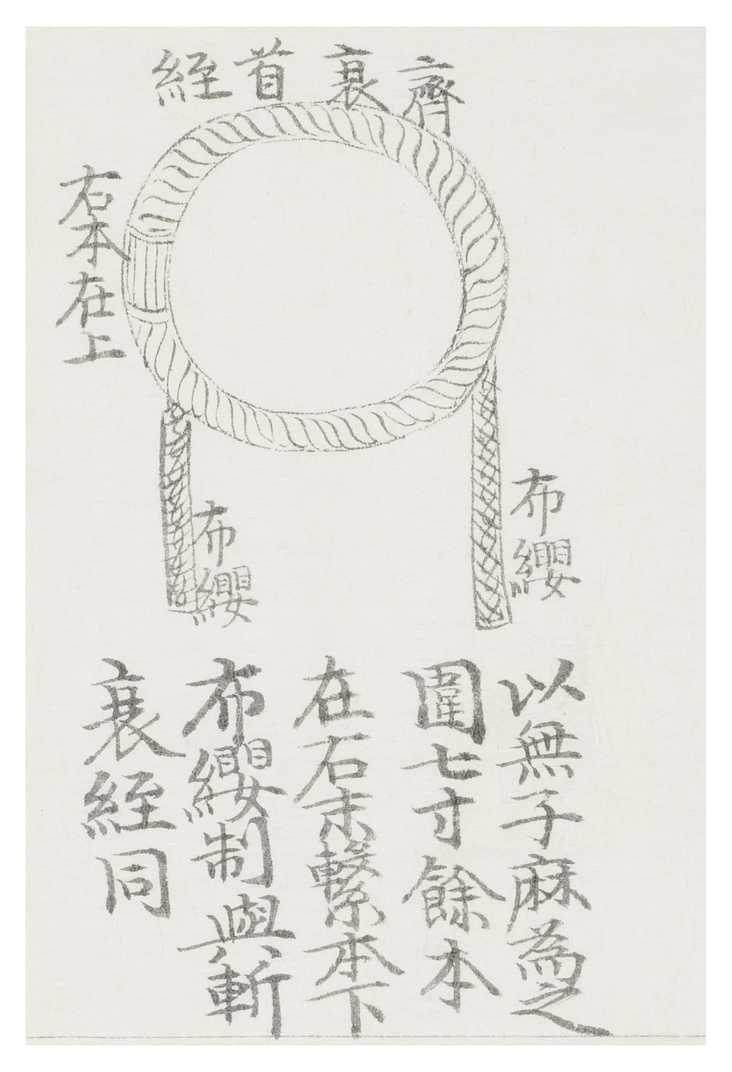 齊衰首絰
右本在上
布纓
布纓
以無子麻為之
圍七寸餘本
在右末繫本下
布纓制與斬
衰絰同